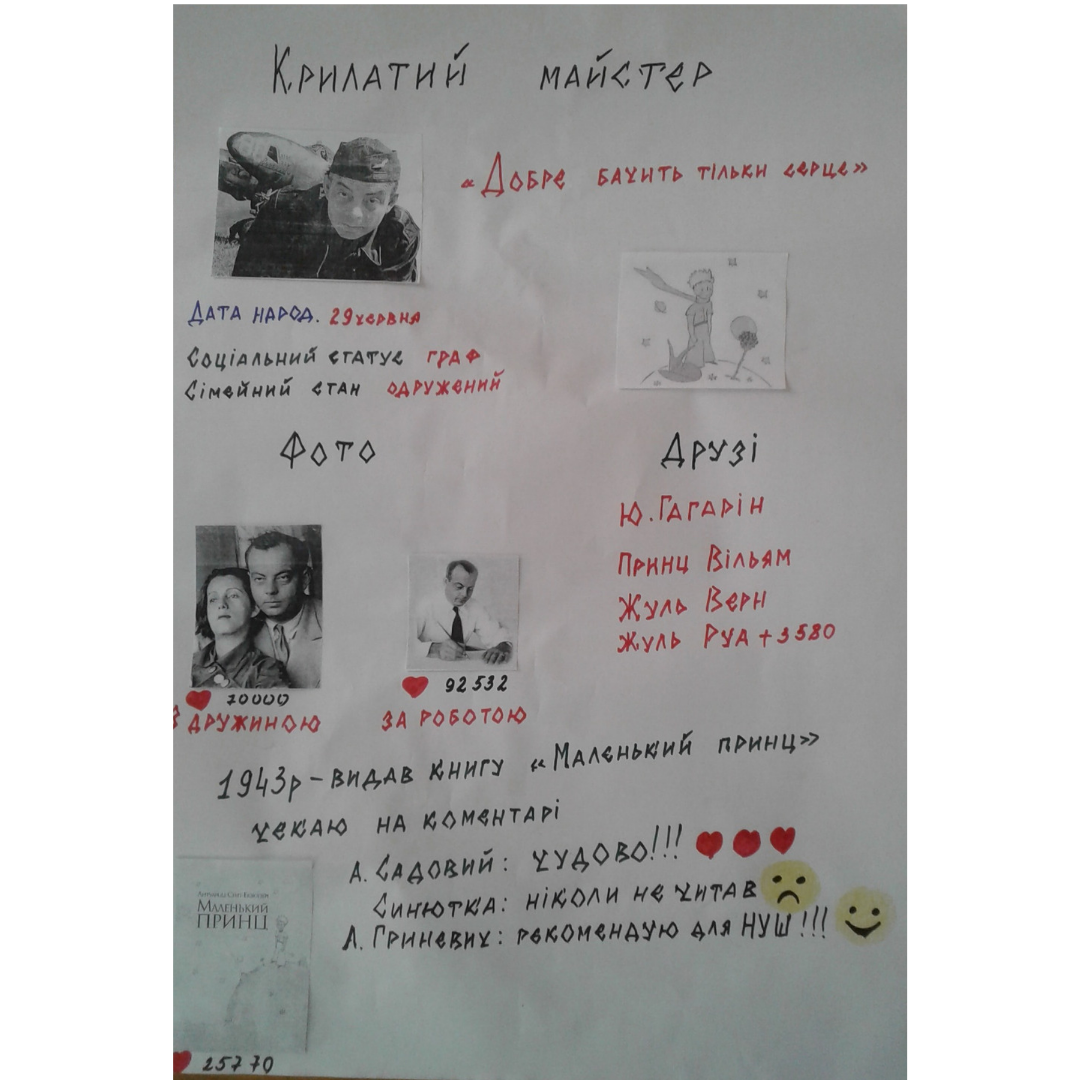 Крилатий майстер
«Добре бачить тільки серце»
Дата народ. 29 червня
Соціальний статус граф
Сімейний стан одружений
Фото
70000
З дружиною
92532
За роботою
Друзі
Ю. Гагарін
Принц Вільям
Жуль Верн
Жуль Руа + 3580
1943р - видав книгу «Маленький принц»
чекаю на коментарі
А. Садовий: чудово!!!
Синютка: ніколи не читав
Л. Гриневич: рекомендую для НУШ!!!
Маленький
ПРИНЦ
25770